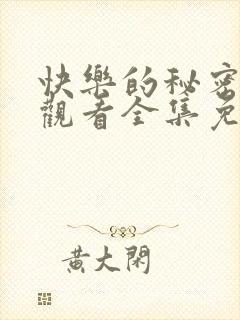 快樂的秘密
觀看全集免
黃大閑